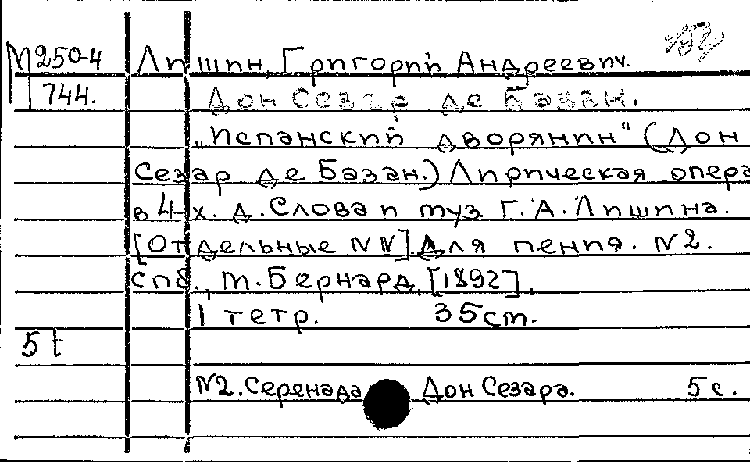 М250-4 Липшин, Григорий Андреевич. 192
744. Дон Сезар де Базан.
„Испанский дворянин" (Дон
Сезар де Базан.) Лирическая опера
в 4-х. д. Слова и муз Г. А. Лишина.
[Отдельные NN] Для пения. N2.
Спб., М. Бернард, [1892].
1 тетр. 35 см.
5 t
N2. Серенада Дон Сезара. 5 с.